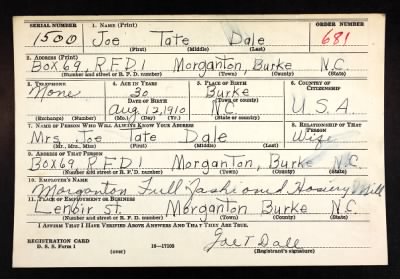 SERIAL NUMBER 1. NAME (Print) ORDER NUMBER
1500 Joe Tate Dale 681
(First) (Middle) (Last)
2. ADDRESS (Print)
Box 69, R.F.D. 1 Morganton, Burke N.C.
(Number and street or R. F. D. number) (Town) (County) (State)
3. TELEPHONE 4. AGE IN YEARS 5. PLACE OF BIRTH 6. COUNTRY OF CITIZENSHIP
None 30 Burke
DATE OF BIRTH (Town or county)
Aug 12, 1910 N.C. U.S.A.
(Exchange) (Number) (Mo.) (Day) (Yr.) (State or country)
7. NAME OF PERSON WHO WILL ALWAYS KNOW YOUR ADDRESS 8. RELATIONSHIP OF THAT PERSON
Mrs Joe Tate Dale Wife
(Mr., Mrs., Miss) (First) (Middle) (Last)
9. ADDRESS OF THAT PERSON
Box 69 R.F.D. 1 Morganton, Burke N.C.
(Number and street or R. F. D. number) (Town) (County) (State)
10. EMPLOYER'S NAME
Morganton Full Fashioned Hosiery Mill
11. PLACE OF EMPLOYMENT OR BUSINESS
Lenoir St. Morganton Burke N.C.
(Number and street or R. F. D. number) (Town) (County) (State)
I AFFIRM THAT I HAVE VERIFIED ABOVE ANSWERS AND THAT THEY ARE TRUE.
REGISTRATION CARD
D. S. S. Form 1 (over) 16—17105 Joe T Dale
(Registrant's signature)